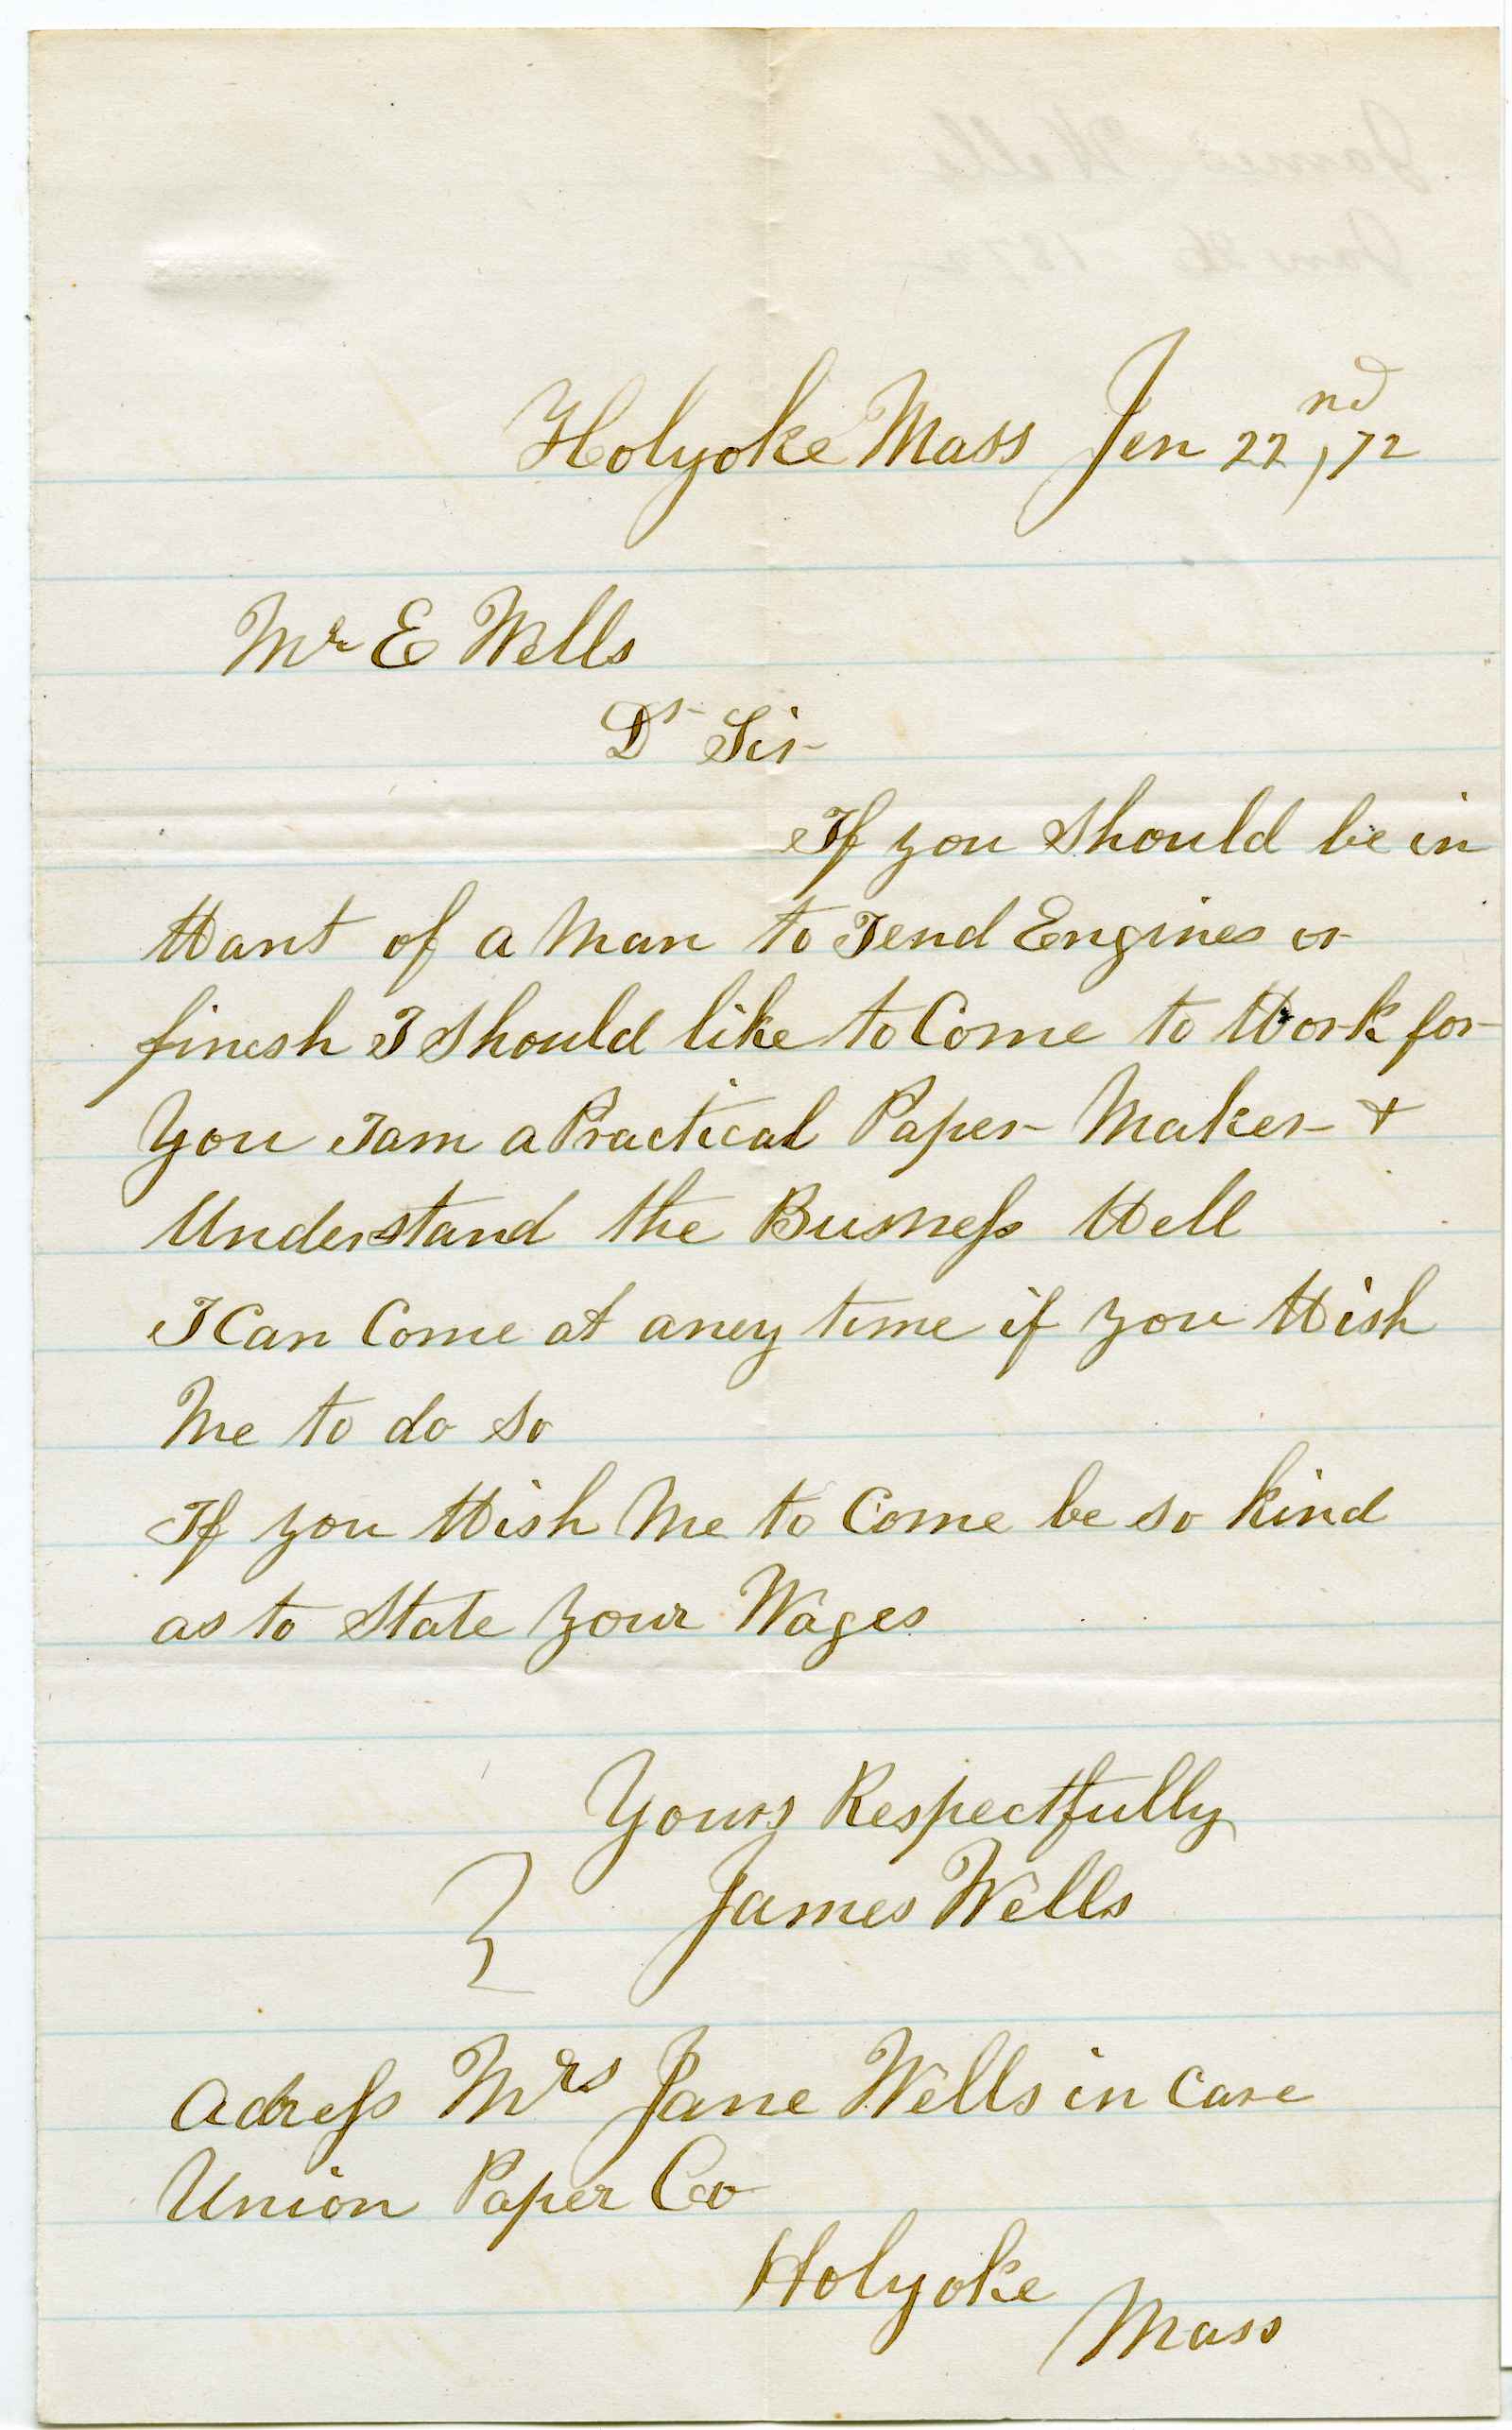 Holyoke Mass Jen 22nd, 72
Mr E Wells
Dr Sir
If you should be in
Want of a Man to Tend Engines or
finesh I should like to Come to Work for
You I am a Practical Paper Maker &
Understand the Busness Well
I Can Come at aney time if you Wish
Me to do so
If you Wish Me to Come be so kind
as to State your Wages
Yours Respectfully
James Wells
Adress Mrs Jane Wells in Care
Union Paper Co
Holyoke
Mass